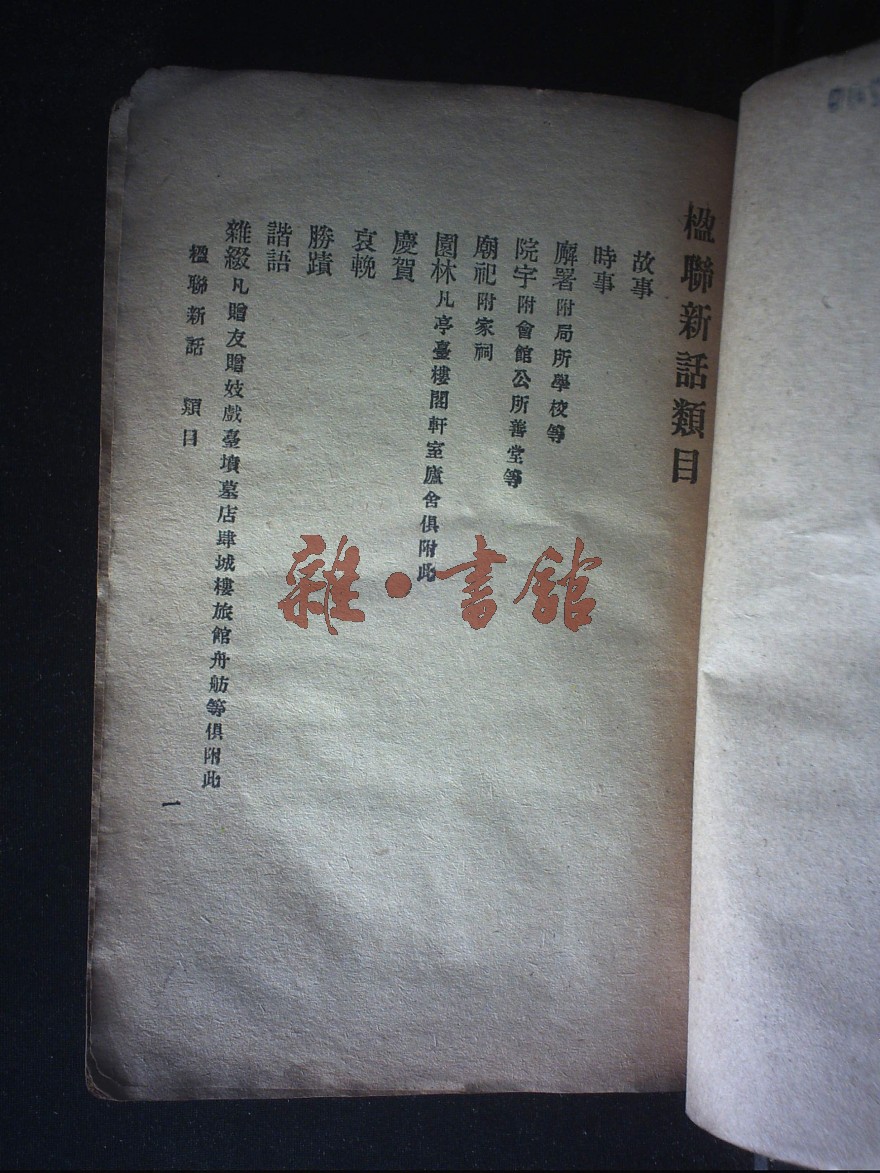 楹聯新話類目
故事
時事
廨署附局所學校等
院宇附會館公所善堂等
廟祀附家祠
園林凡亭臺樓閣軒室廬舍俱附此
慶賀
哀輓
勝蹟
諧語
雜綴凡贈友贈妓戲臺墳墓店肆城樓旅館舟舫等俱附此
楹聯新話 類目
一
雜·書館